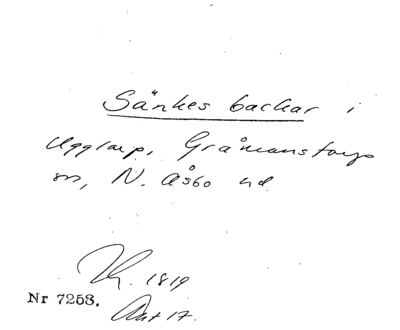 Sänkes backar i
Ugglarp, Gråmanstorps
sn, N. Åsbo hd
1819
Nr 7253.
Akt 17.